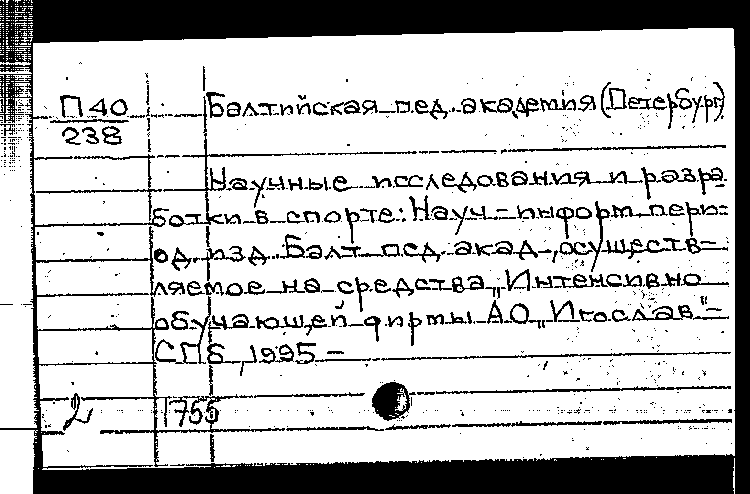 П40 Балтийская пед. академия (Петербург)
238
Научные исследования и разра-
ботки в спорте: Науч.-информ. пери-
од. изд. Балт. пед. акад., осуществ-
ляемое на средства „Интенсивно
обучающей фирмы АО „Игослав"-
СПб, 1995 -
2 1755